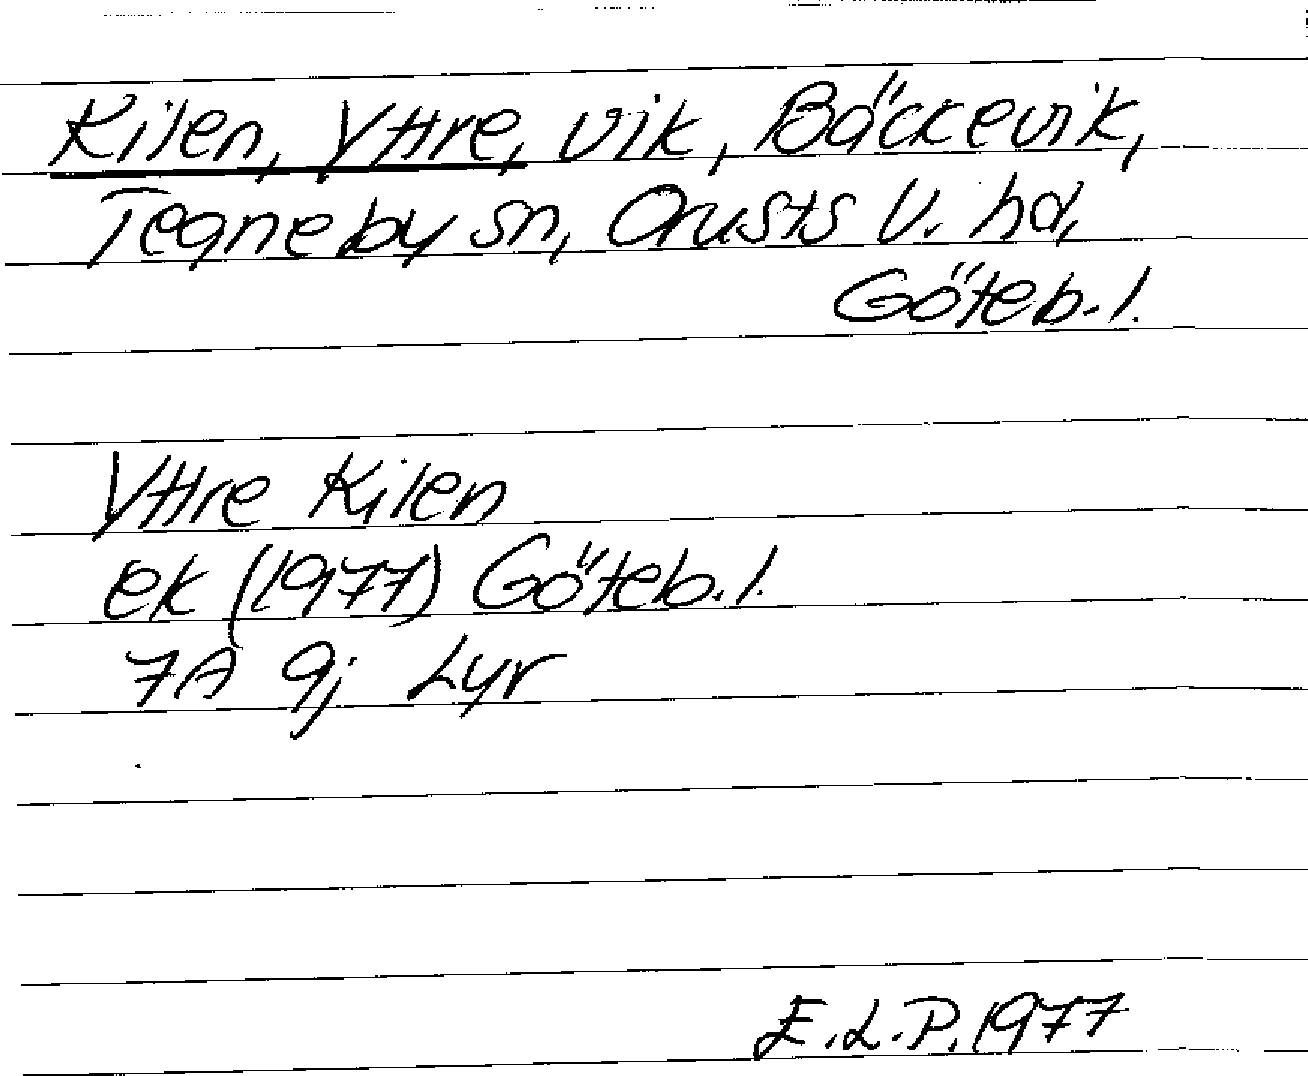 Kilen, Yttre, vik, Bäckevik,
Tegneby sn, Orusts V. hd,
Göteb. l.
Yttre Kilen
ek (1977) Göteb. l.
7A 9j Lyr
E.L.P. 1977